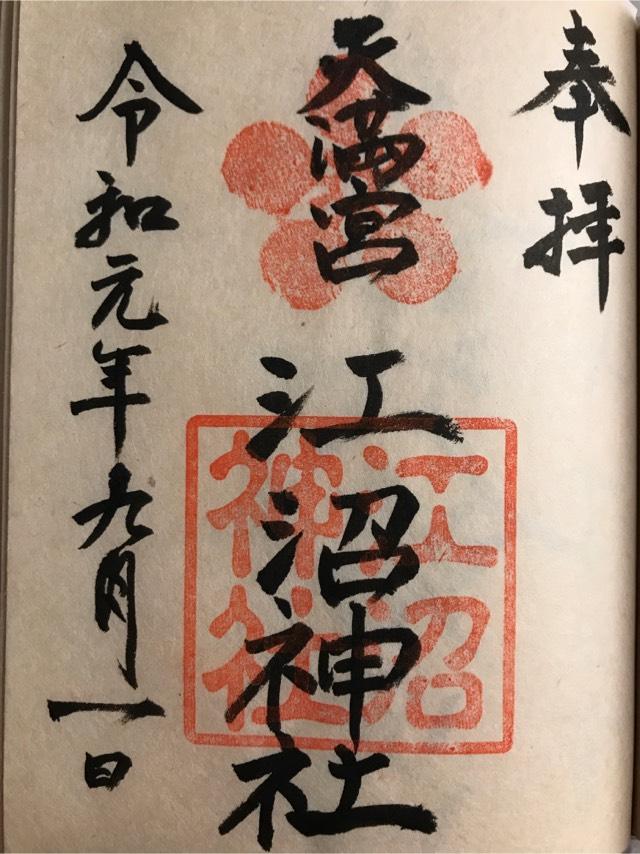 奉拝
天満宮
江沼神社
江沼
神社
令和元年九月一日